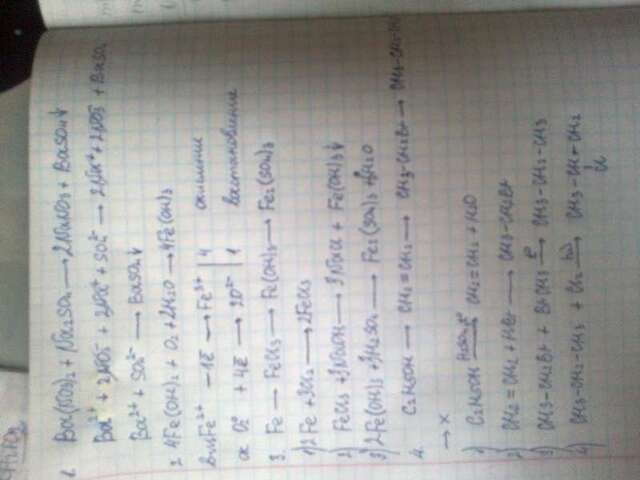 1. Ba(NO3)2 + Na2SO4 → 2NaNO3 + BaSO4↓
Ba2+ + 2NO3- + 2Na+ + SO4 2- → 2Na+ + 2NO3- + BaSO4
Ba2+ + SO4 2- → BaSO4↓
2. 4Fe(OH)2 + O2 + 2H2O → 4Fe(OH)3
Fe2+ -1ē → Fe3+ | 4
O2 +4ē → 2O2- | 1
3. Fe → FeCl3 → Fe(OH)3 → Fe2(SO4)3
1) 2Fe + 3Cl2 → 2FeCl3
2) FeCl3 + 3NaOH → 3NaCl + Fe(OH)3↓
3) 2Fe(OH)3 + 3H2SO4 → Fe2(SO4)3 + 6H2O
4. C2H5OH → CH2=CH2 → CH3-CH2Br → CH3-CH2-CH3
→ X
1) C2H5OH → CH2=CH2 + H2O
2) CH2=CH2 + HBr → CH3-CH2Br
3) CH3-CH2Br + BrCH3 → CH3-CH2-CH3
4) CH3-CH2-CH3 + Cl2 → CH3-CH-CH2
Cl